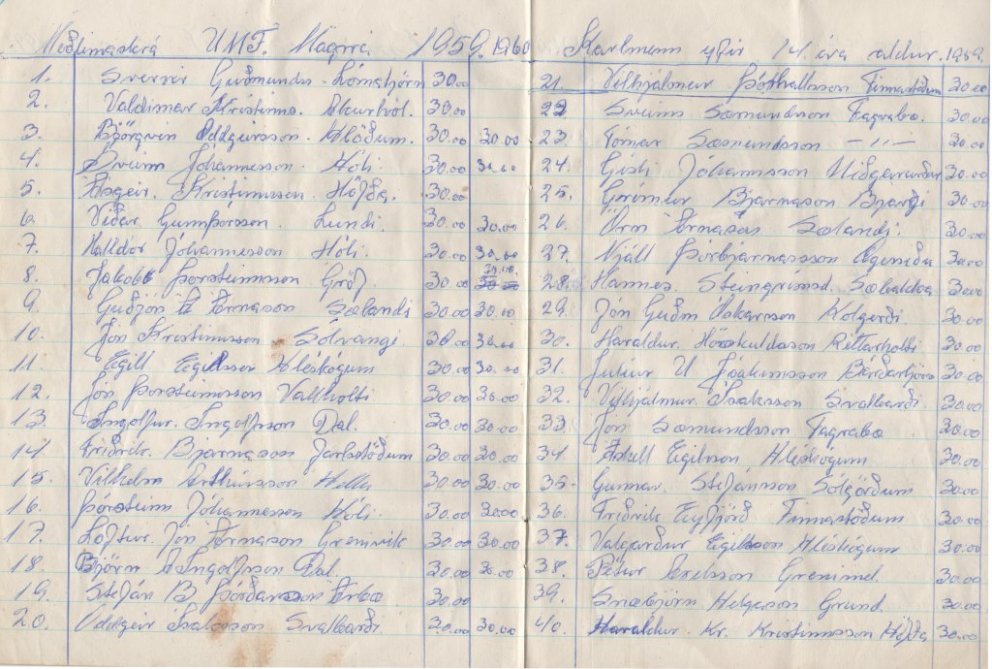 Meðlimaskrá U.M.F. Magni 1959. 1960
1. Sverrir Guðmunds. Lómatjörn 30.00
2. Valdimar Kristins. 30.00
3. Björgvin Oddgeirsson. Hlöðum. 30.00 30.00
4. Sveinn Jóhannesson Hóli. 30.00 30.00
5. Ásgeir Kristinsson Höfða. 30.00
6. Viðar Gunnþórsson. Lundi. 30.00 30.00
7. Halldór Jóhannesson Hóli. 30.00 30.00
8. Jakob Þorsteinsson Gröf. 30.00 30.00
9. Guðjón Á Árnason Sælandi 30.00 30.00
10. Jón Kristinsson Sólvangi 30.00 30.00
11. Egill Egilsson Hléskógum 30.00 30.00
12. Jón Þorsteinsson Vallholti 30.00 30.00
13. Ingólfur. Ingólfsson Dal. 30.00 30.00
14. Friðrik. Bjarnason Jarlsstöðum 30.00 30.00
15. Vilhelm Arthúrsson 30.00 30.00
16. Þórsteinn Jóhannesson Hóli. 30.00 30.00
17. Loftur. Jón Árnason Grenivík 30.00 30.00
18. Björn A Ingólfsson Dal. 30.00 30.00
19. Stefán B Þórðarsson 30.00 30.00
20. Oddgeir Ísaksson Svalbarði. 30.00 30.00
Karlmenn yfir 14. ára aldur. 1959.
21. Vilhjálmur Þórhallsson Finnastöðum 30.00
22 Sveinn Sæmundson Fagrabæ. 30.00
23. Tómas Sæmundsson -11- 30.00
24. Gísli Jóhannsson Miðgarði 30.00
25. Grímur Bjarnason Bjargi 30.00
26. Örn Árnason Sælandi. 30.00
27. Njáll Þórbjarnasson 30.00
28. Hannes. Steingrímss. Sæbakka 30.00
29. Jón Guðm Óskarsson Kolgerði. 30.00
30. Haraldur. Höskuldsson Réttarholti 30.00
31. Júlíus U Jóakimsson 30.00
32. Vilhjálmur. Ísaksson Svalbarði. 30.00
33. Jón Sæmundsson Fagrabæ 30.00
34. Áskell Egilsson Hléskógum 30.00
35. Gunnar. Stefánsson Sólgörðum 30.00
36. Friðrik Eyfjörð Finnastöðum 30.00
37. Valgarður Egilsson Hléskógum 30.00
38. Pétur Axelsson Grenimel. 30.00
39. Snæbjörn Helgason Grund. 30.00
40. Haraldur. Kr. Kristinsson Höfða 30.00